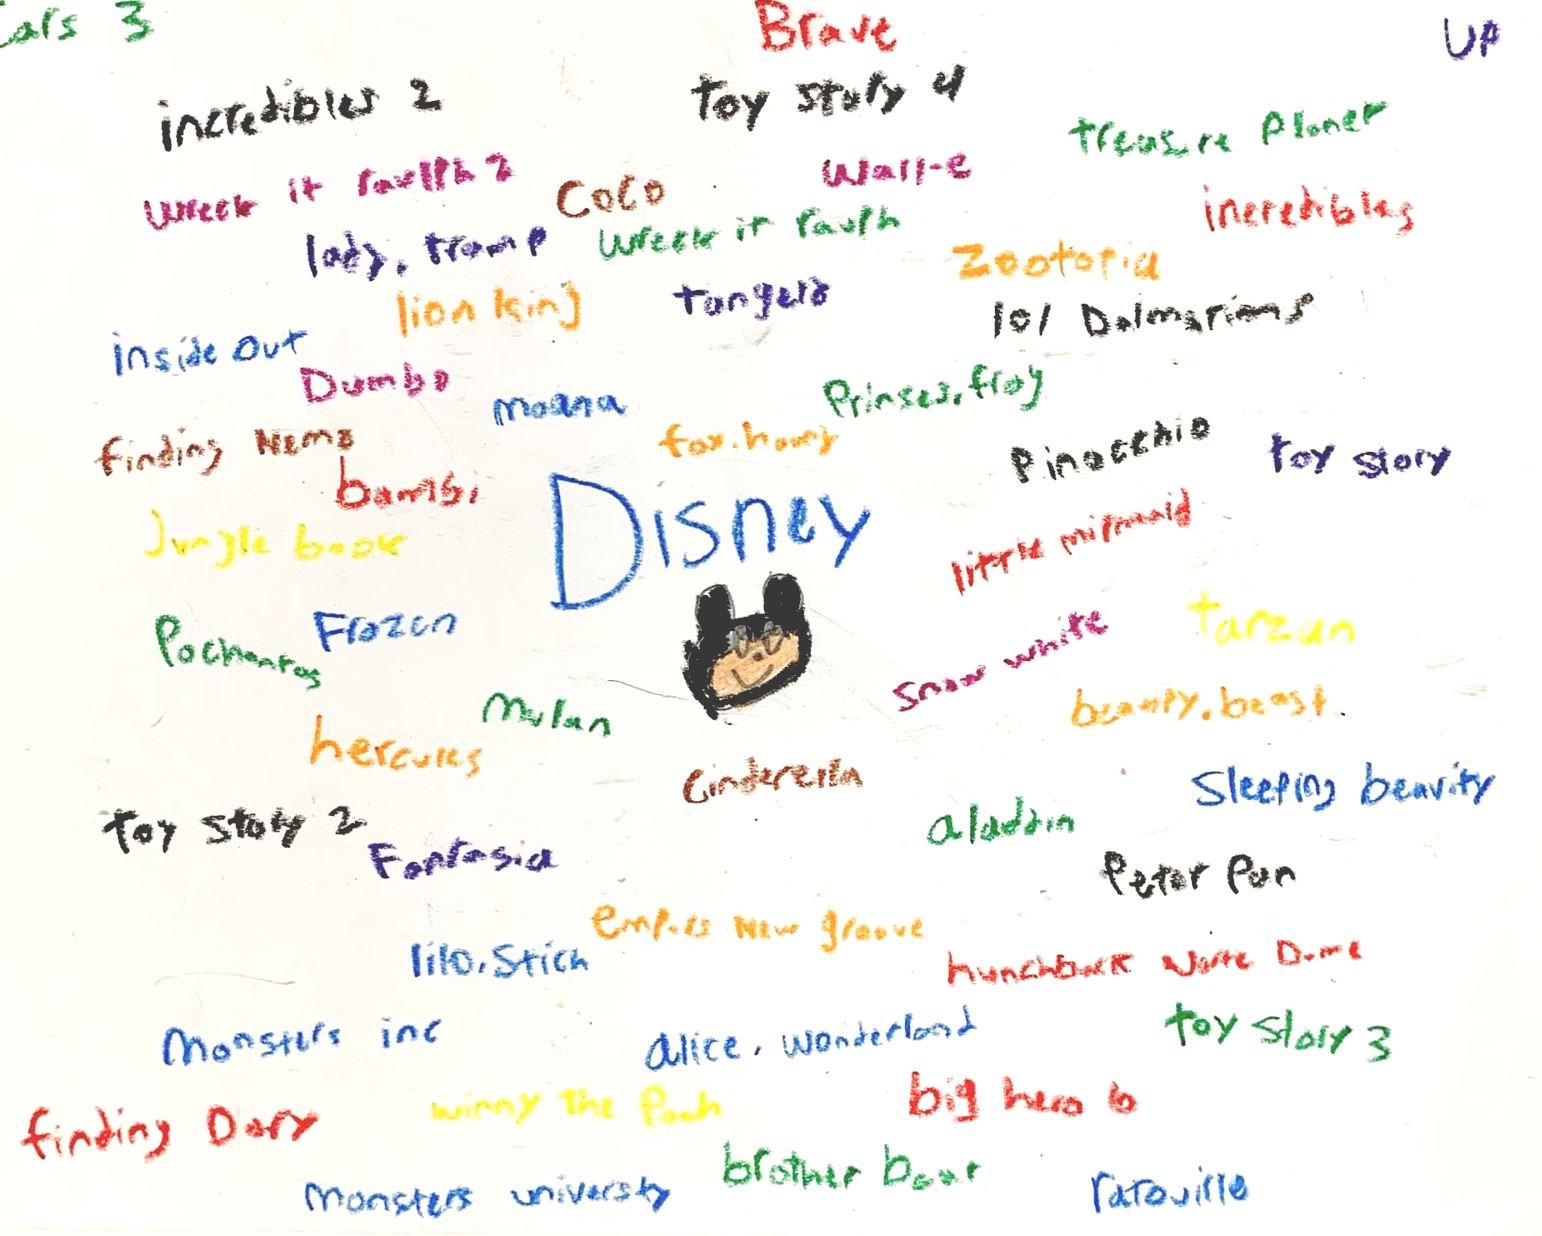 Cars 3
Brave
UP
incredibles 2
toy story 4
treasure Planet
wreck it raulph 2
Coco
Wall-e
incredibles
lady, tramp
wreck it raulph
Zootopia
lion king
tangeld
101 Dalmarians
inside Out
Dumbo
moana
Prinses, frog
finding Nemo
fox. hound
Pinocchio
toy story
bambi
Jungle book
Disney
little mirmaid
Pochantas
Frozen
snow white
tarzan
Mulan
beauty. beast
hercules
Cinderella
Sleeping beavity
toy story 2
Fantasia
aladdin
Peter Pan
lilo. Stich
New groove
hunchback Notre Dame
Monsters inc
alice. wonderland
toy story 3
finding Dory
winny the Pooh
big hero 6
Monsters university
brother bear
ratouille